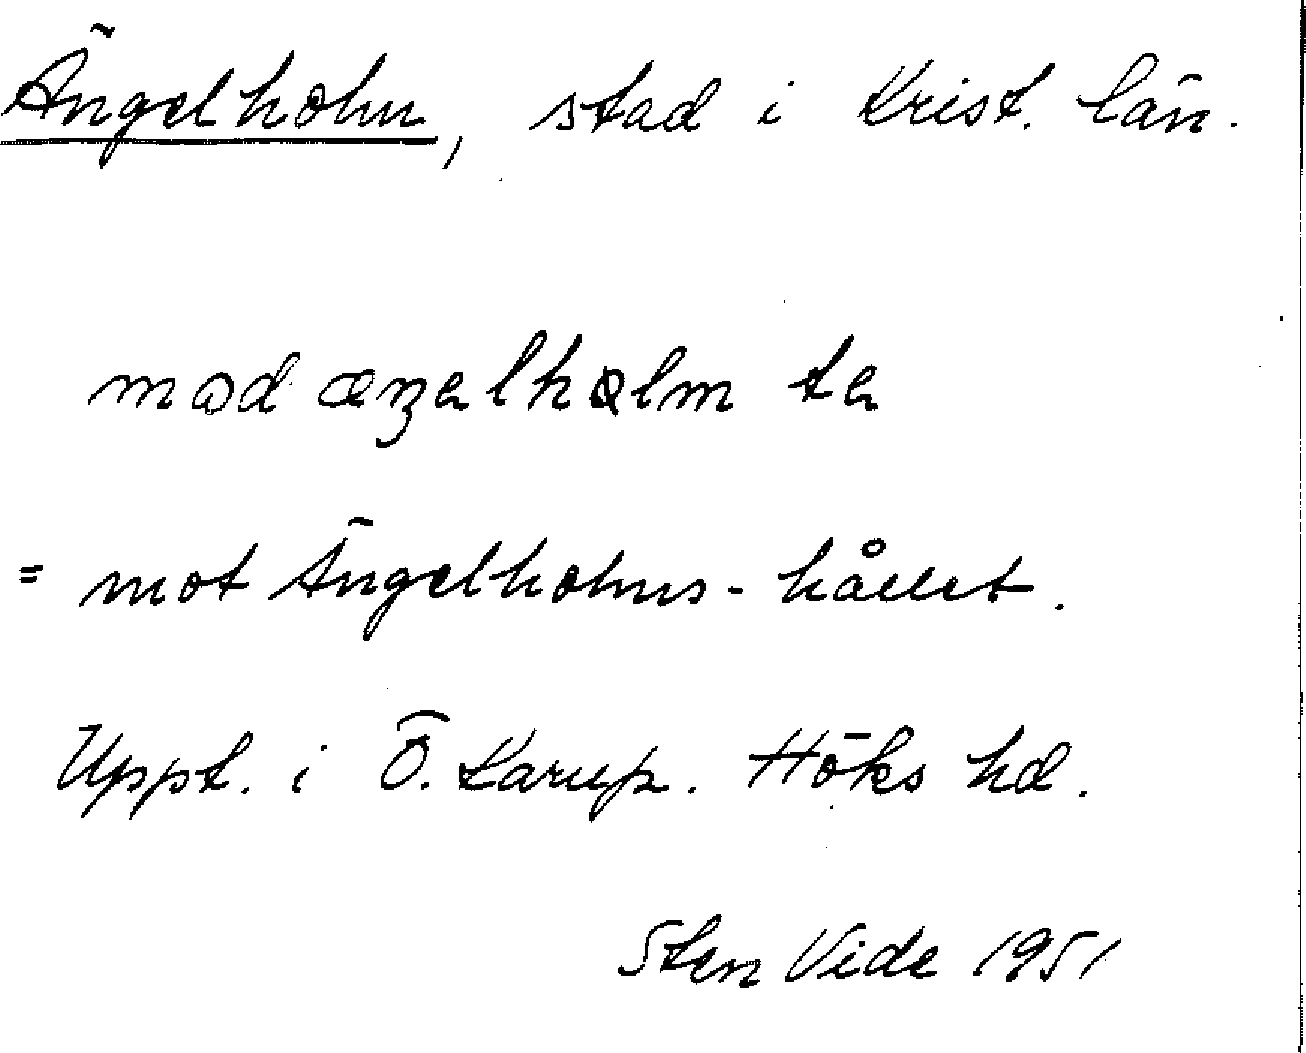 Ängelholm, stad i Krist. län.
mod æŋelholm te
= mot Ängelholms-hållet.
Uppt. i Ö. Karup. Höks hd.
Sten Vide 1951